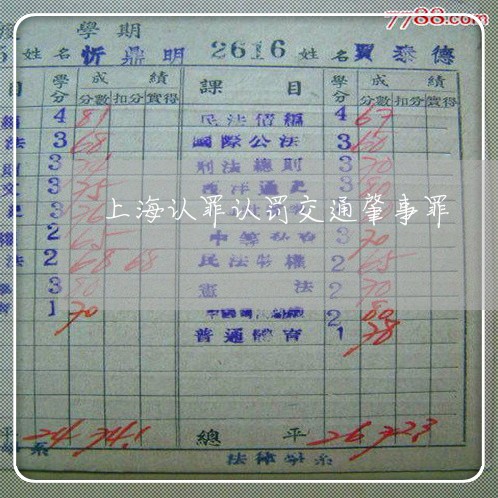 7788.com
學期
姓名 忻鼎明 2616 姓名 賈泰德
目 學分 成績 課目 學分 成績
分數 扣分 實得 分數 扣分 實得
4 81 民法債編 4 67
法 3 68 國際公法 3 60
3 刑法總則 3 70
文 3 75 西洋通史 3
3 3
上海认罪认罚交通肇事罪
權 2 65 3 70
法 2 68 68 民法物權 2 65
3 80 憲法 2 70
1 70 2 80
普通體育 1 78
平 24 74.1 總平 26 72.3
系 法律學系